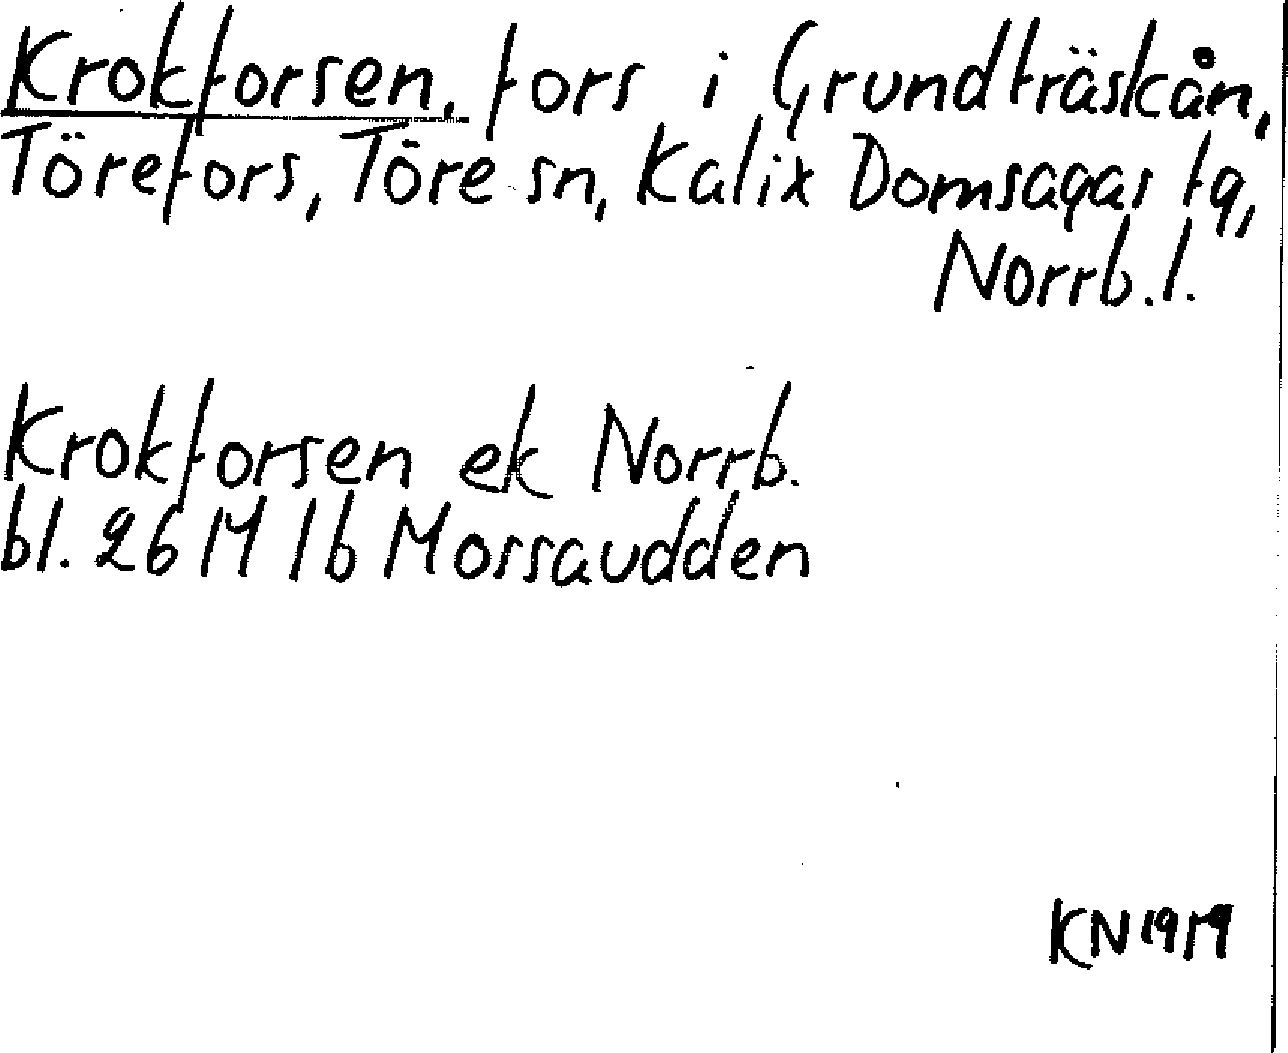 Krokforsen, fors i Grundträskån,
Törefors, Töre sn, Kalix Domsagas tg,
Norrb. l.
Krokforsen ek Norrb.
bl. 26 M 1b Mossaudden
KN 1979